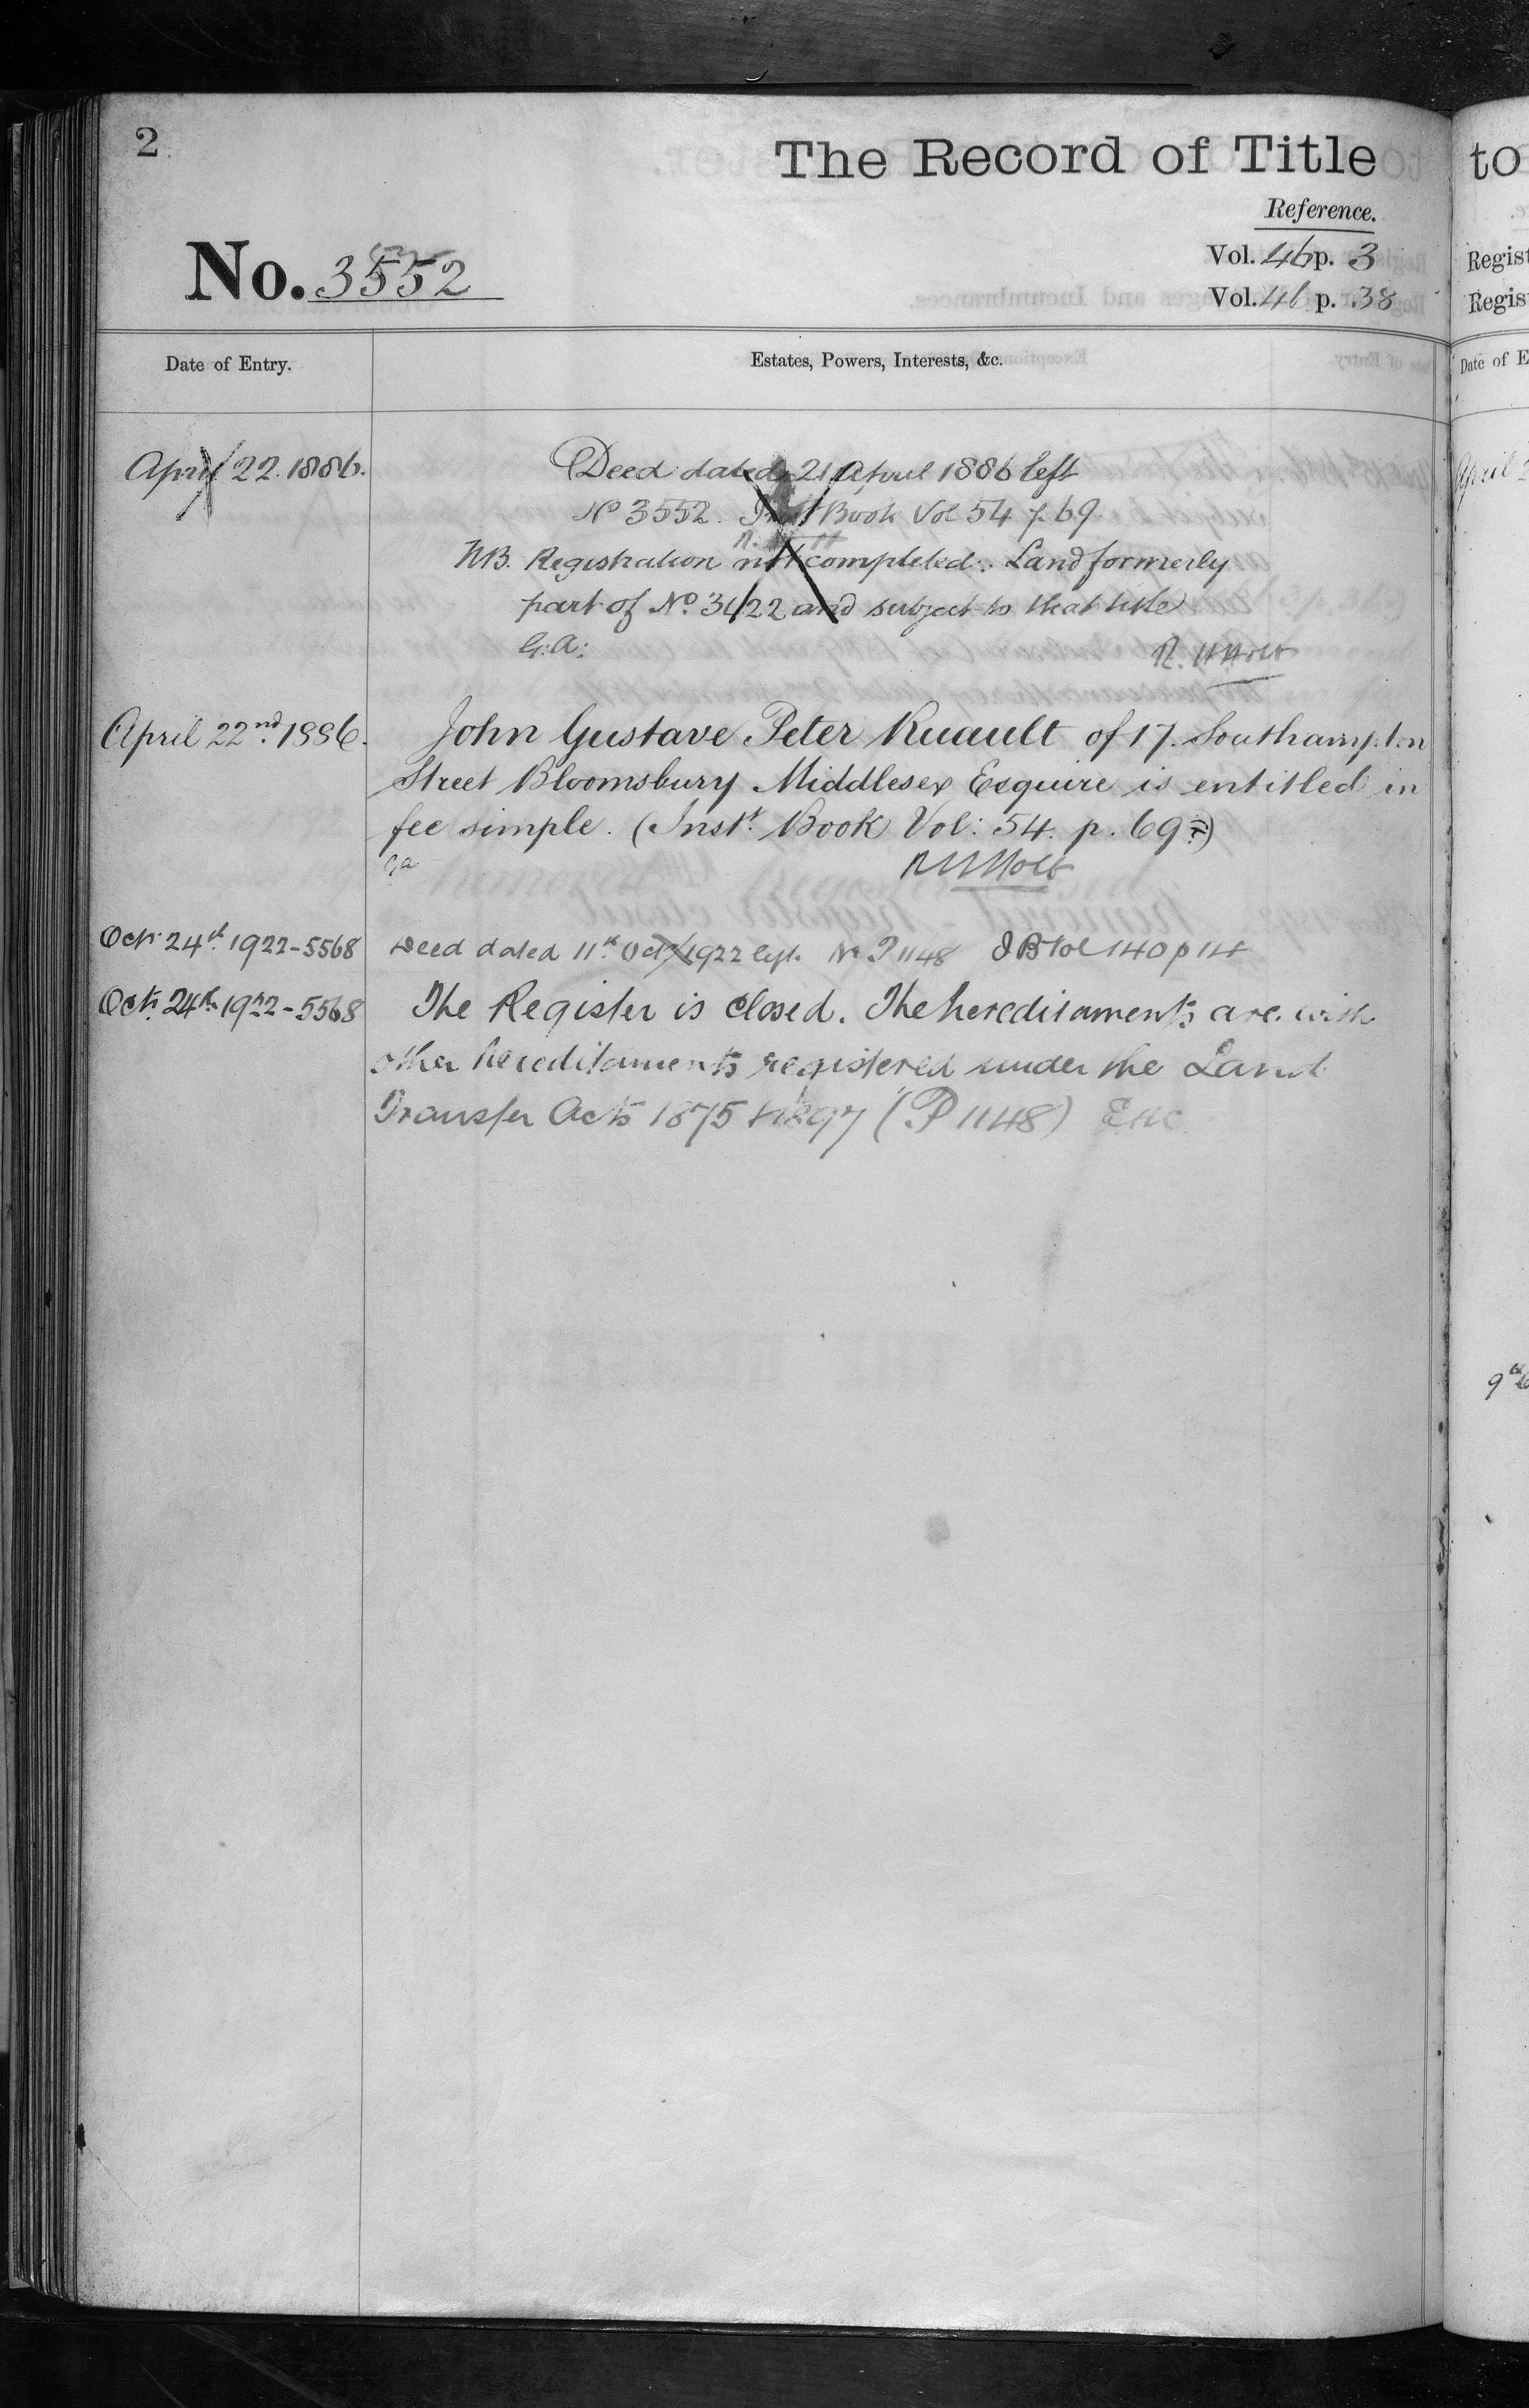 2
The Record of Title
Reference.
Vol. 46 p. 3
No. 3552
Vol. 46 p. 38
Date of Entry.
Estates, Powers, Interests, &c.
April 22. 1886.
Deed dated 21 April 1886 left
No 3552. Inst Book Vol 54 p 69
NB. Registration not completed. Land formerly
part of No. 3422 and subject to that title
G.A:
R. H Holt
April 22nd. 1886.
John Gustave Peter Ruault of 17. Southampton
Street Bloomsbury Middlesex Esquire is entitled in
fee simple. (Inst. Book Vol: 54. p. 69)
Ga
R H Holt
Oct. 24th. 1922-5568
Deed dated 11th Oct 1922 left. No P 1148 I B Vol 140 p 14
Oct. 24th. 1922-5568
The Register is closed. The hereditaments are with
other hereditaments registered under the Land
Transfer Acts 1875 & 1897 (P 1148)
to
Regist
Regis
Date of E
April 2